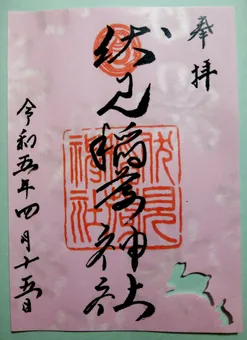 奉拝
伏見稲荷神社
令和五年四月十五日